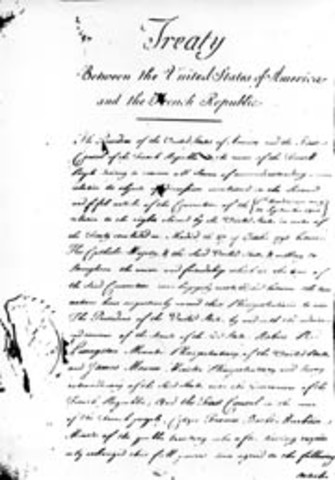 Treaty
Between the United States of America
and the French Republic
The President of the United States of America and the First
Consul of the French Republic in the name of the French
People desiring to remove all Source of misunderstanding
relative to objects of discussion mentioned in the Second
and fifth articles of the Convention of the September
relative to the rights claimed by the United States in virtue of
the Treaty concluded at Madrid the of October between
His Catholic Majesty & the Said United States, & willing to
Strengthen the union and friendship which at the time of
the Said Convention was happily between the two
nations have respectively named their Plenipotentiaries to wit
The President of the United States, by and with the advice
and consent of the Senate of the Said States Robert R.
Livingston Minister Plenipotentiary of the United States
and James Monroe Minister Plenipotentiary and Envoy
extraordinary of the Said States near the Government of the
French Republic; And the First Consul in the name
of the French people, Citizen Francis Barbé Marbois
Minister of the public treasury who after having
exchanged their full powers have agreed to the following